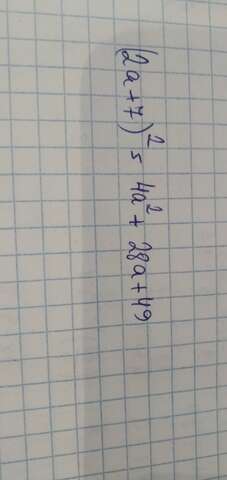 (2a+7)² = 4a² + 28a+49